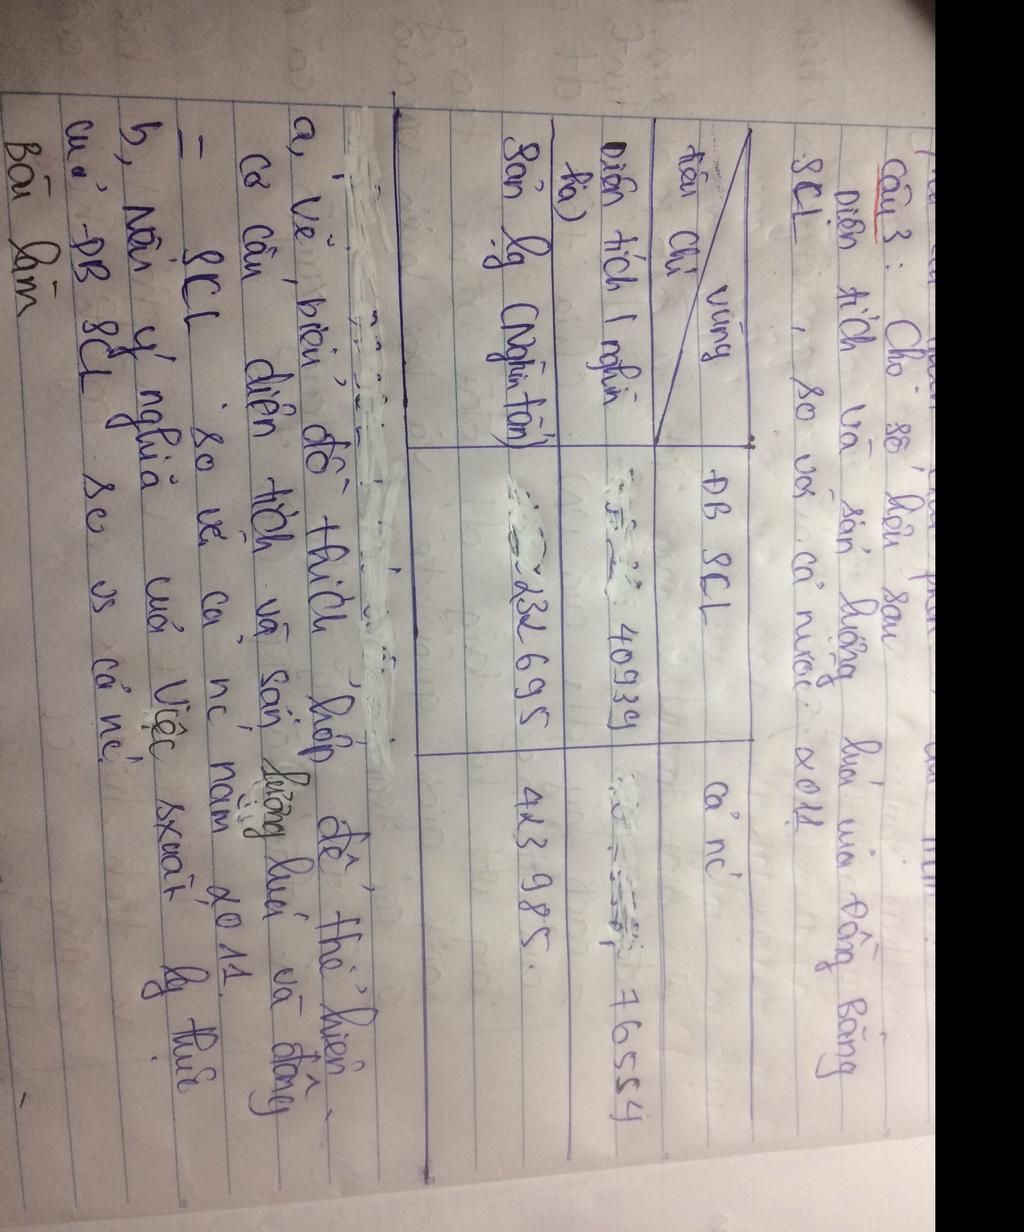 Câu 3: Cho số liệu sau
Diện tích và sản lượng lúa của Đồng Bằng
SCL, so với cả nước 2011
vùng
tiêu chí
ĐB SCL
cả nc
Diện tích (nghìn
ha)
40939
76554
Sản lg (Nghìn tấn)
232695
423985.
a, Vẽ biểu đồ thích hợp để thể hiện
cơ cấu diện tích và sản lượng lúa và đồng
= SCL so với cả nc năm 2011.
b, Nêu ý nghĩa của Việc sxuất lg thực
của ĐB SCL so vs cả nc
Bài làm